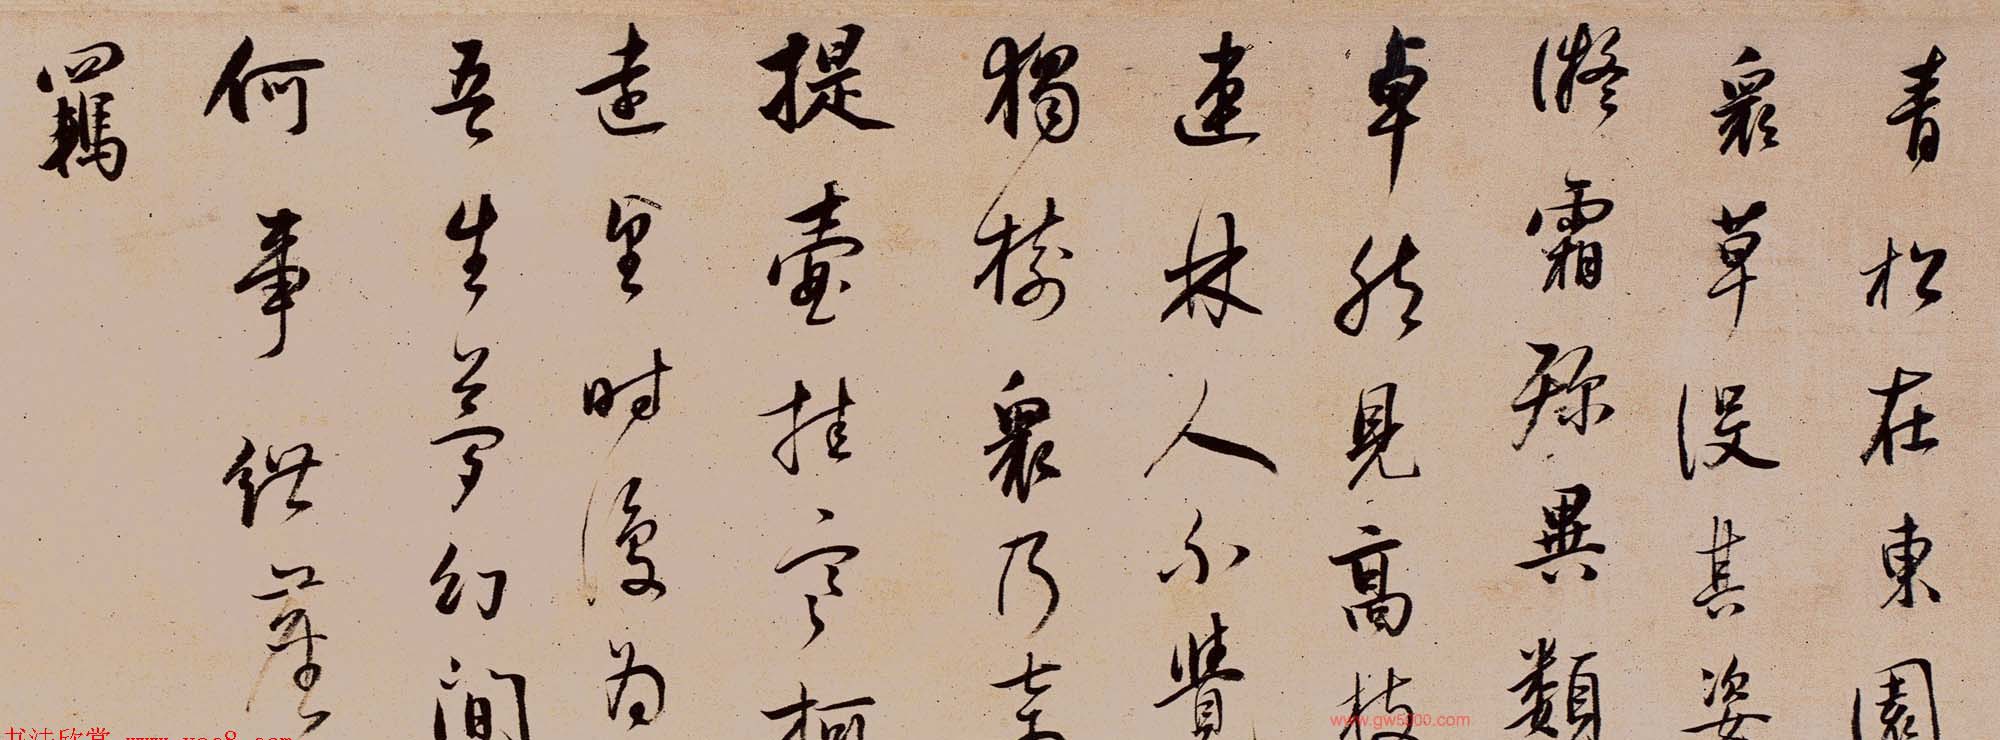 青松在東園
眾草沒其姿
凝霜殄異類
卓然見高枝
連林人不覺
獨樹眾乃奇
提壺挂寒柯
遠望時復為
吾生夢幻間
何事紲塵
羈
www.gw5000.com
书法欣赏 www.yac8.com